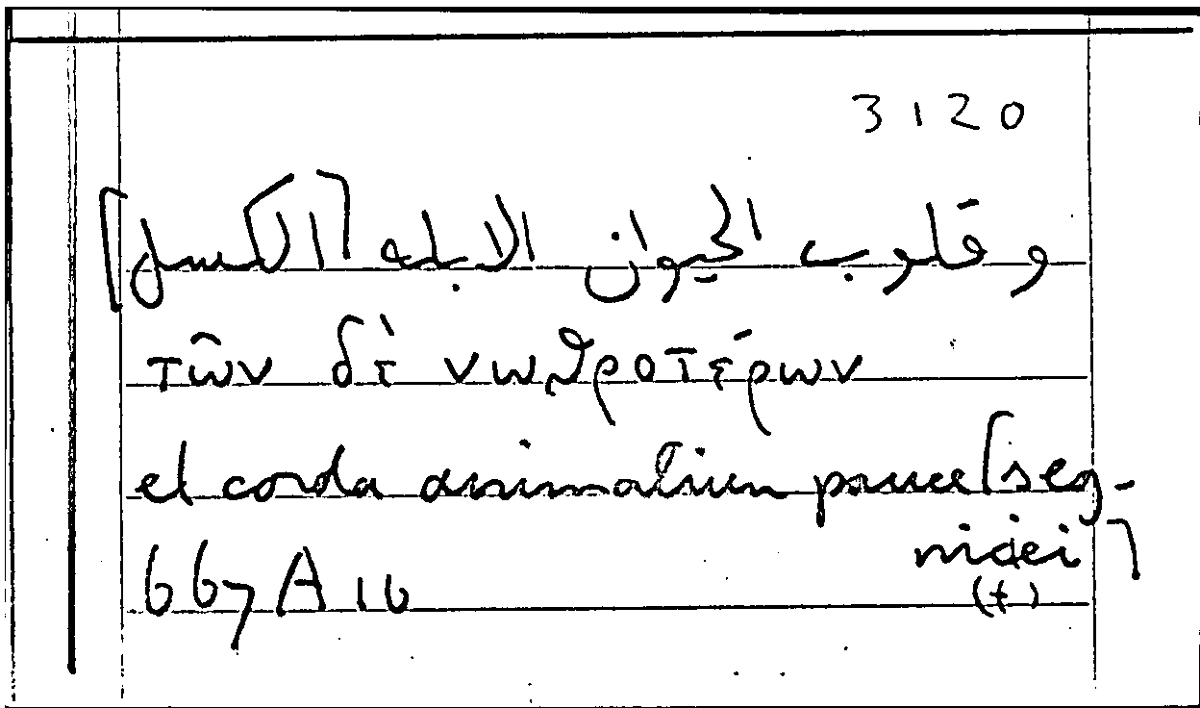 3120
وقلوب الحيوان الابله [الكسل]
τῶν δὲ νωθροτέρων
et corda animalium pauce [seg-
nidei]
(t)
667 A 16